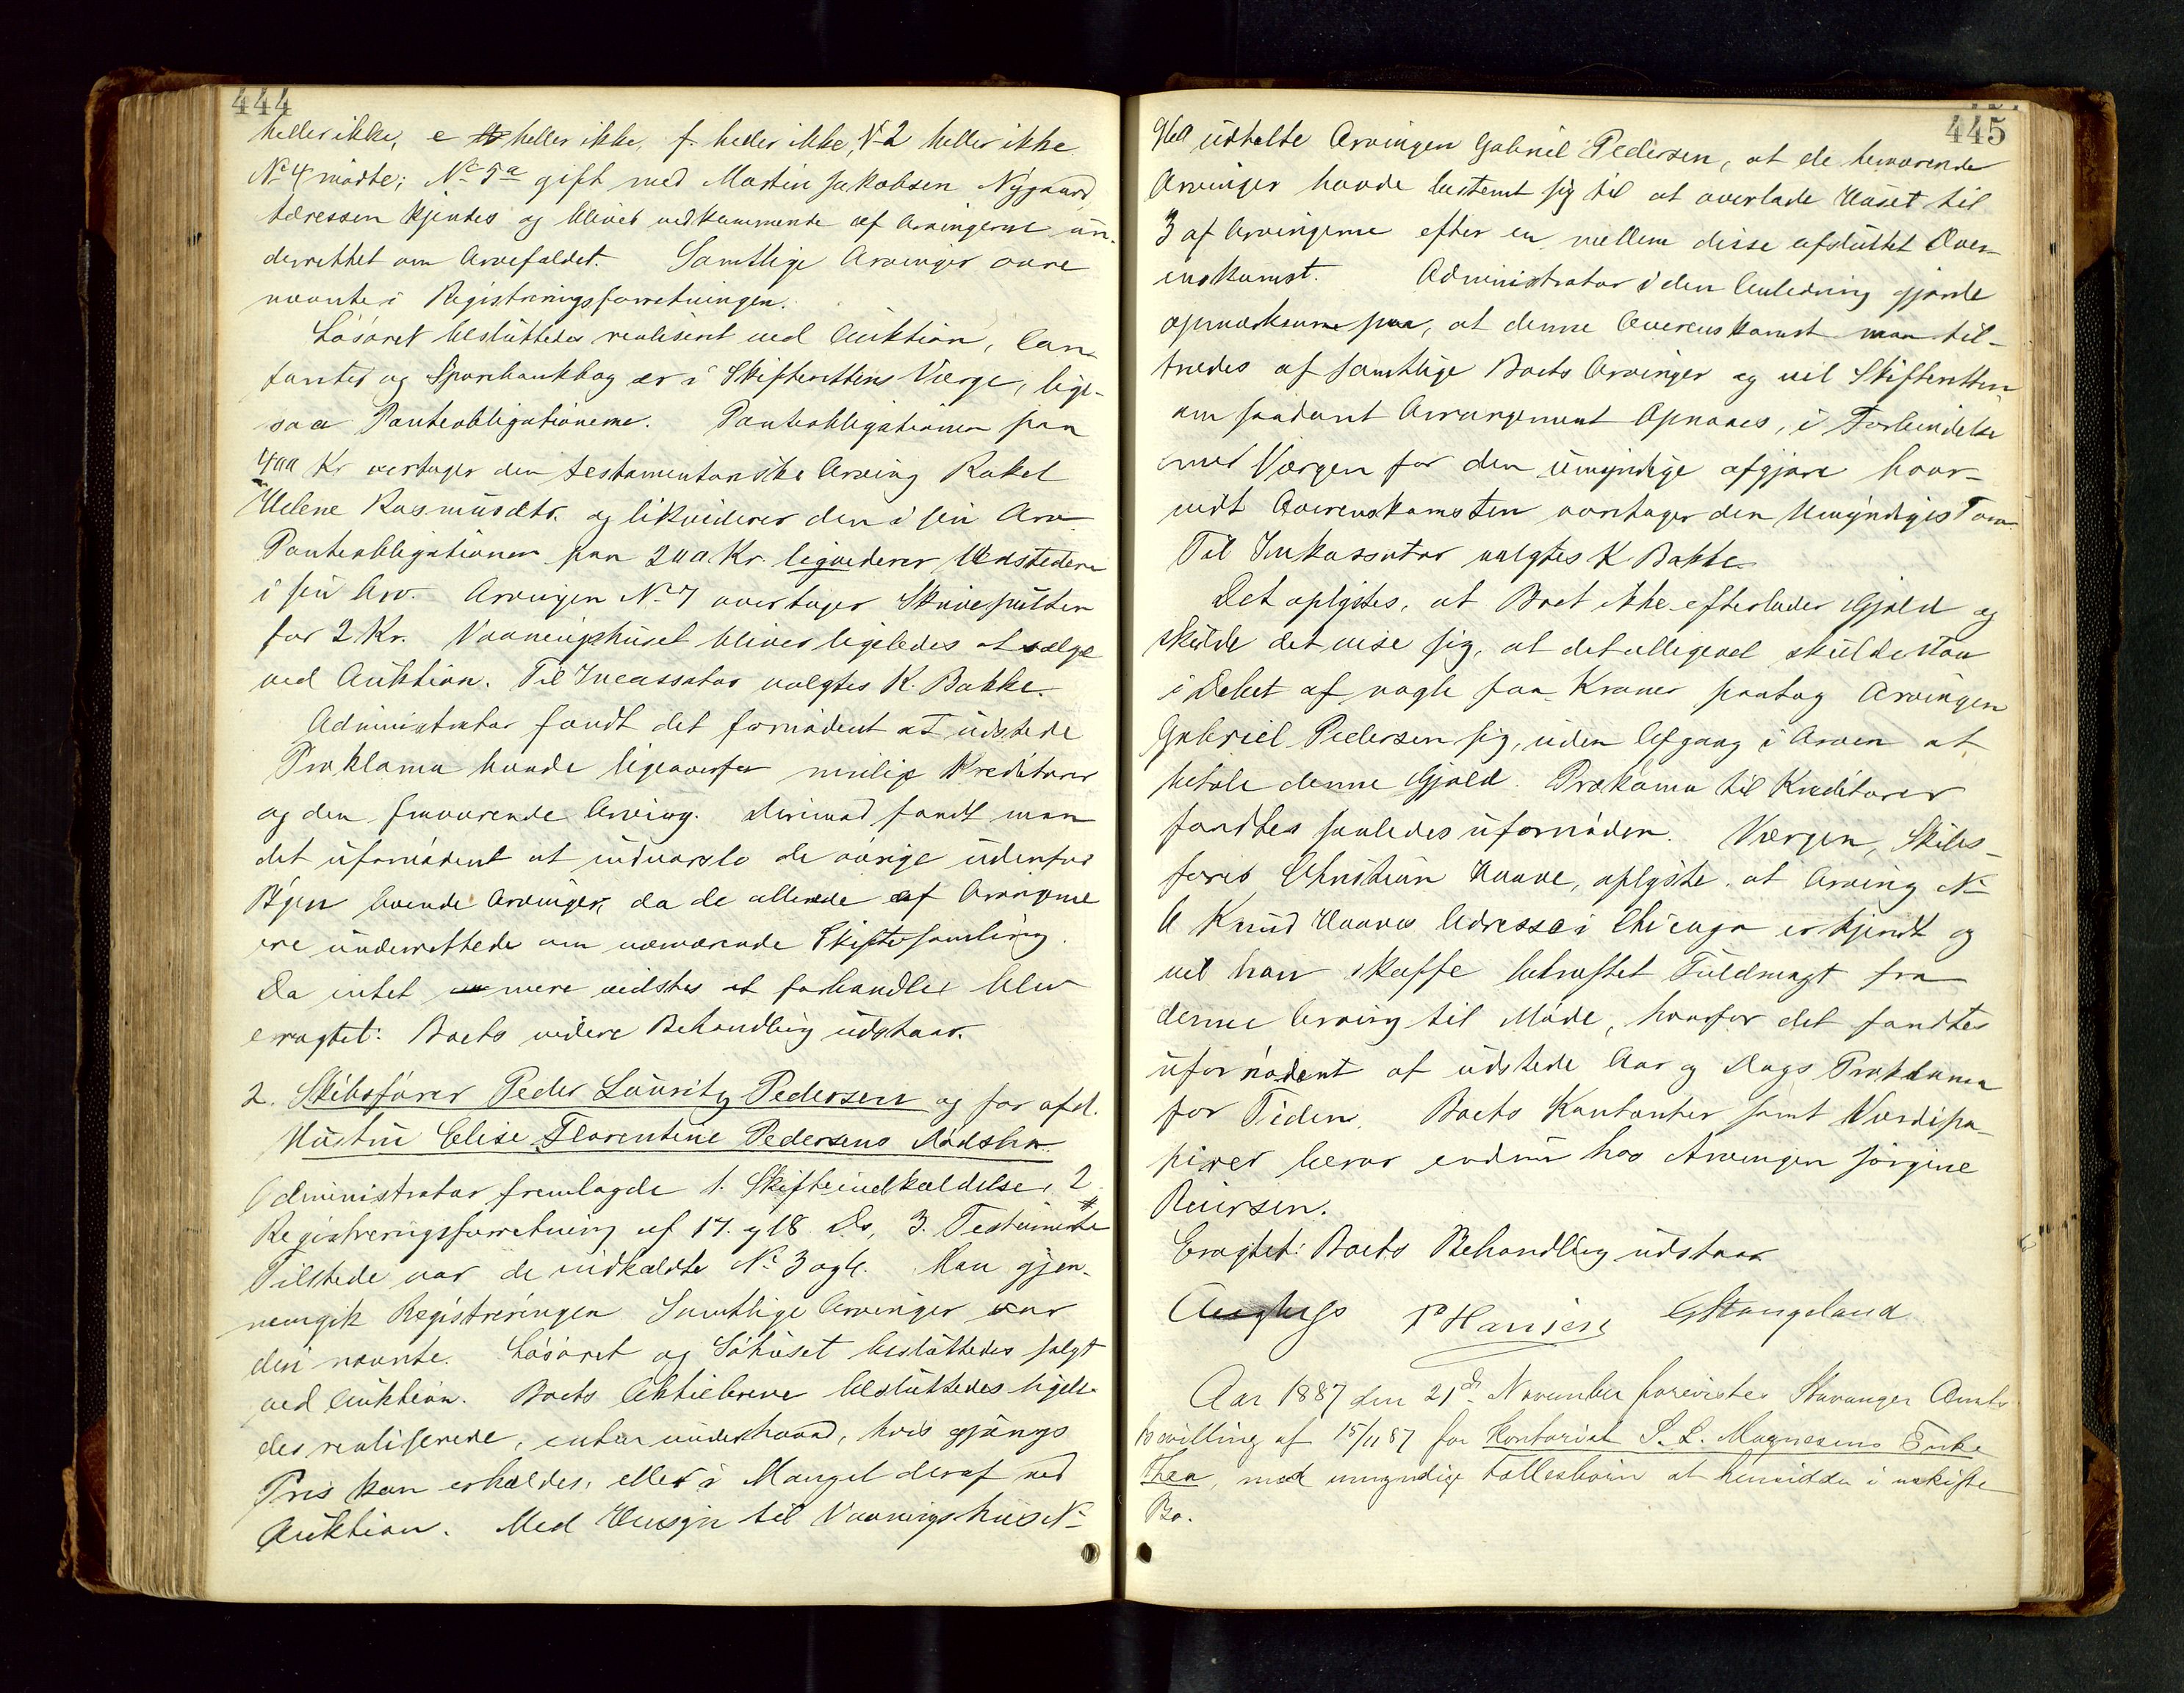 444
heller ikke, e heller ikke, f. heller ikke, No 2 heller ikke
No 4 mödte; No 5a gift med Martin Jakobsen Nygaard,
Adressen kjendes og bliver vedkommende af Arvingerne un-
derrettet om Arvefaldet. Samtlige Arvinger vare
nævnte i Registreringsforretningen.
Lösöret besluttedes realiseret ved Auktion, Con-
tanter og Sparebankbog er i Skifterettens Værge, lige-
saa Panteobligationerne. Panteobligationen paa
400 Kr overtager den testamentariske Arving Rakel
Helene Rasmusdtr. og likviderer den i sin Arv
Panteobligationen paa 200 Kr. liqviderer Udstederen
i sin Arv. Arvingen No 7 overtager Skrivepulten
for 2 Kr. Vaaningshuset bliver ligeledes at sælge
ved Auktion. Til Incassator valgtes K. Bakke.
Administrator fandt det fornödent at udstede
Proklama baade ligeoverfor mulige Kreditorer
og den fraværende Arving. Derimod fandt man
det ufornödent at indvarsle de övrige udenfor
Byen boende Arvinger, da de allerede af Arvingerne
ere underrettede om nærværende Skiftesamling.
Da intet mere vidstes at forhandles blev
eragtet: Boets videre Behandling udstaar.
2. Skibsförer Peder Lauritz Pedersen og for afd.
Hustru Elise Florentine Pedersens Dödsbo.
Administrator fremlagde 1. Skifteindkaldelse, 2
Registreringsforretning af 17. og 18 Ds, 3. Testamente
Tilstede var de indkaldte No 3 og 4. Man gjen-
nemgik Registreringen Samtlige Arvinger var
deri nævnte. Lösöret og Söhuset besluttedes solgt
ved Auktion. Boets Aktiebreve besluttedes ligele-
des realiserede, enten underhaand, hvis gjængs
Pris kan erholdes, eller i Mangel deraf ved
Auktion. Med Hensyn til Vaaningshus No
445
960 udtalte Arvingen Gabriel Pedersen, at de herværende
Arvinger havde bestemt sig til at overlade Huset til
3 af Arvingerne efter en mellem disse afsluttet Over-
enskomst. Administrator i den Anledning gjorde
opmærksom paa, at denne Overenskomst maa til-
trædes af samtlige Boets Arvinger og vil Skifteretten
om saadant Arrangement opnaaes, i Forbindelse
med Værgen for den umyndige afgjöre hvor-
vidt Overenskomsten varetager den Umyndiges Tarv
Til Inkassator valgtes K Bakke.
Det oplystes, at Boet ikke efterlader Gjæld og
skulde det vise sig, at det alligevel skulde staa
i Debet af nogle faa Kroner paatog Arvingen
Gabriel Pedersen sig, uden Afgang i Arven at
betale denne Gjæld. Proklama til Kreditorer
fandtes saaledes ufornöden. Værgen, Skibs-
förer Christian Haave, oplyste, at Arving No
6 Knud Haaves Adresse i Chicago er kjendt og
vil han skaffe bekræftet Fuldmagt fra
denne Arving til Möde, hvorfor det fandtes
ufornödent at udstede Aar og Dags Proklama
for Tiden. Boets Kontanter samt Værdipa-
pirer beror endnu hos Arvingen Jörgine
Reiersen.
Eragtet: Boets Behandling udstaar
P Hansen GStangeland
Aar 1887 den 21de November forevistes Stavanger Amts
bevilling af 15/11 87 for Kontorist S. L. Magnesens Enke
Thea, med umyndige Fællesbörn at hensidde i uskiftet
Bo.